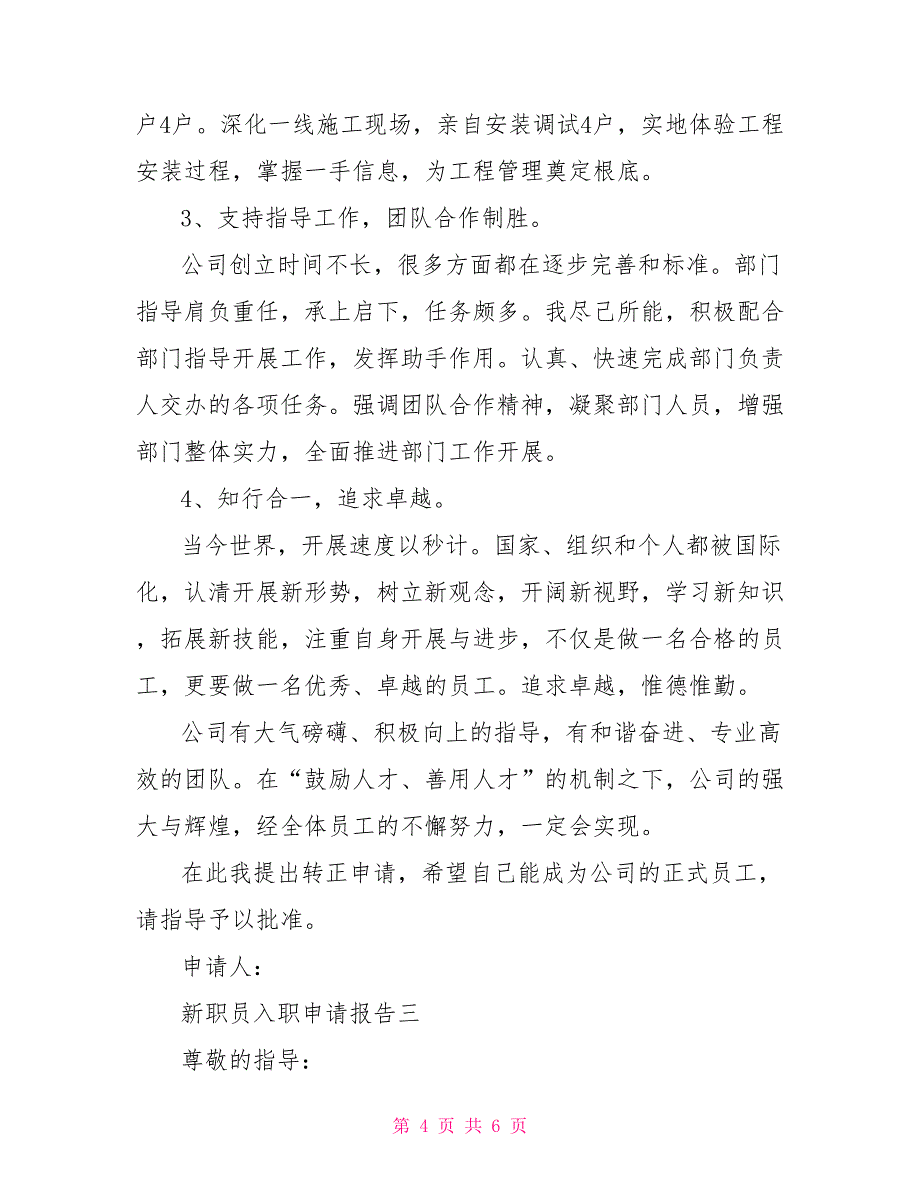 户4户。深化一线施工现场，亲自安装调试4户，实地体验工程
安装过程，掌握一手信息，为工程管理奠定根底。
3、支持指导工作，团队合作制胜。
公司创立时间不长，很多方面都在逐步完善和标准。部门
指导肩负重任，承上启下，任务颇多。我尽己所能，积极配合
部门指导开展工作，发挥助手作用。认真、快速完成部门负责
人交办的各项任务。强调团队合作精神，凝聚部门人员，增强
部门整体实力，全面推进部门工作开展。
4、知行合一，追求卓越。
当今世界，开展速度以秒计。国家、组织和个人都被国际
化，认清开展新形势，树立新观念，开阔新视野，学习新知识
，拓展新技能，注重自身开展与进步，不仅是做一名合格的员
工，更要做一名优秀、卓越的员工。追求卓越，惟德惟勤。
公司有大气磅礴、积极向上的指导，有和谐奋进、专业高
效的团队。在“鼓励人才、善用人才”的机制之下，公司的强
大与辉煌，经全体员工的不懈努力，一定会实现。
在此我提出转正申请，希望自己能成为公司的正式员工，
请指导予以批准。
申请人：
新职员入职申请报告三
尊敬的指导：
第 4 页 共 6 页